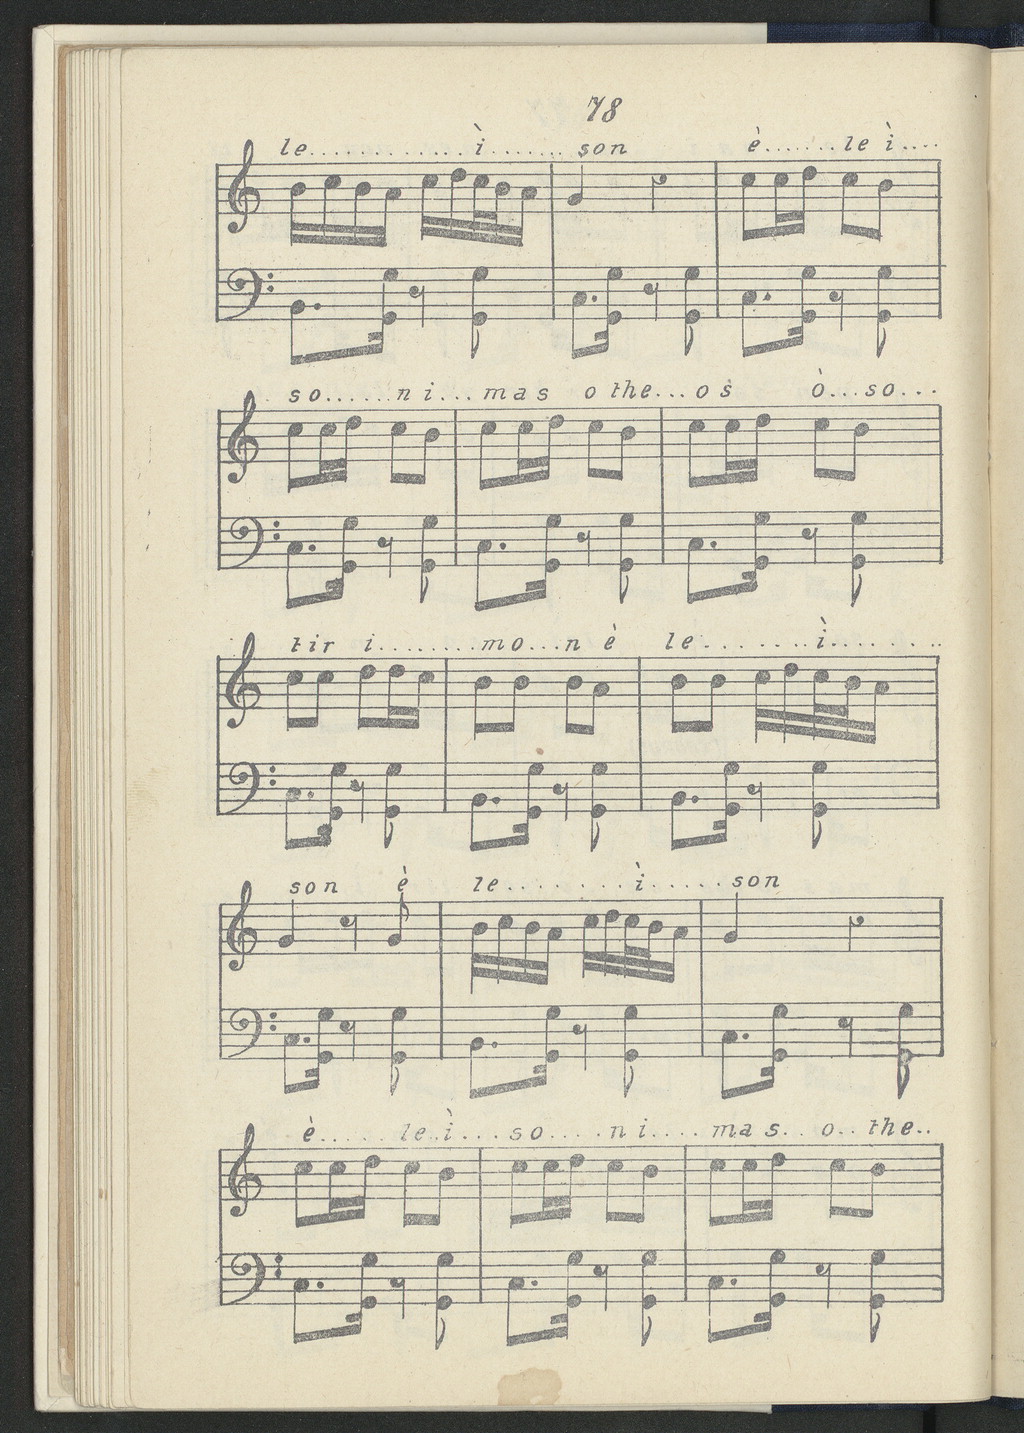 78
le............ì....... son è.......le ì....
so......ni...mas othe...os ò...so...
tir i........mo...n è le........ì........
son è le........ì.....son
è..... le..ì....so....ni....mas..o..the..